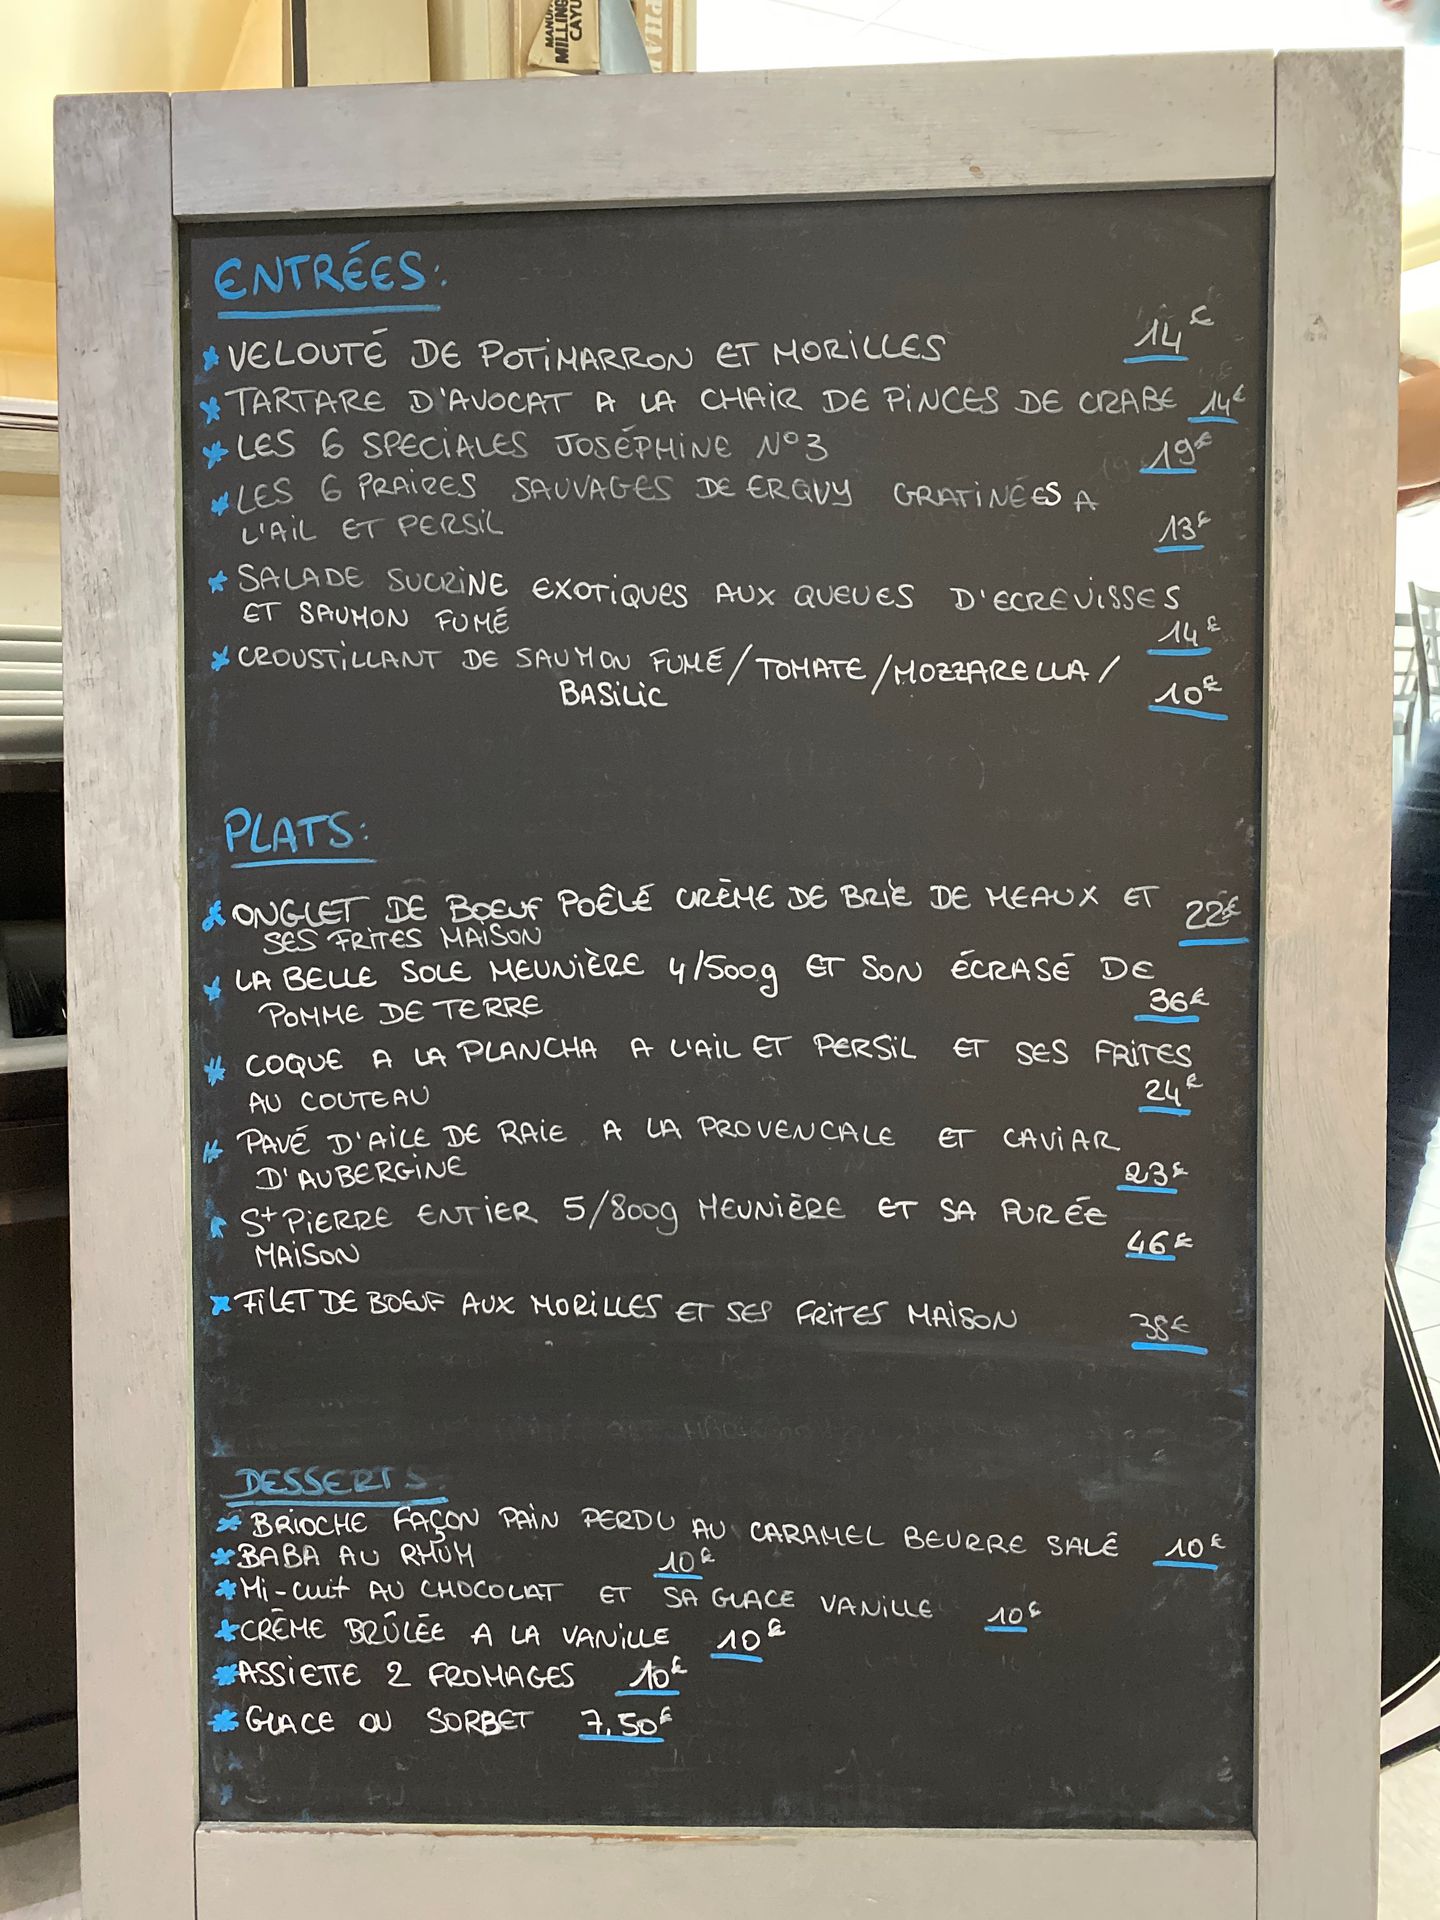 MANU
MILLING
CAYU
ENTRÉES:
* VELOUTÉ DE POTIMARRON ET MORILLES 14€
* TARTARE D'AVOCAT A LA CHAIR DE PINCES DE CRABE 14€
* LES 6 SPECIALES JOSÉPHINE N°3 19€
* LES 6 PRAIRES SAUVAGES DE ERQVY GRATINÉES A
L'AIL ET PERSIL 13€
* SALADE SUCRINE EXOTIQUES AUX QUEUES D'ECREVISSES
ET SAUMON FUMÉ 14€
* CROUSTILLANT DE SAUMON FUMÉ/TOMATE/MOZZARELLA/
BASILIC 10€
PLATS:
* ONGLET DE BOEUF POÊLÉ CRÈME DE BRIE DE MEAUX ET 22€
SES FRITES MAISON
* LA BELLE SOLE MEUNIÈRE 4/500g ET SON ÉCRASÉ DE
POMME DE TERRE 36€
* COQUE A LA PLANCHA A L'AIL ET PERSIL ET SES FRITES
AU COUTEAU 24€
* PAVÉ D'AILE DE RAIE A LA PROVENCALE ET CAVIAR
D'AUBERGINE 23€
* St PIERRE ENTIER 5/800g MEUNIÈRE ET SA PURÉE
MAISON 46€
* FILET DE BOEUF AUX MORILLES ET SES FRITES MAISON 38€
DESSERTS
* BRIOCHE FAÇON PAIN PERDU AU CARAMEL BEURRE SALÉ 10€
* BABA AU RHUM 10€
* Mi-cuit AU CHOCOLAT ET SA GLACE VANILLE 10€
* CRÈME BRÛLÉE A LA VANILLE 10€
* ASSIETTE 2 FROMAGES 10€
* GLACE OU SORBET 7,50€